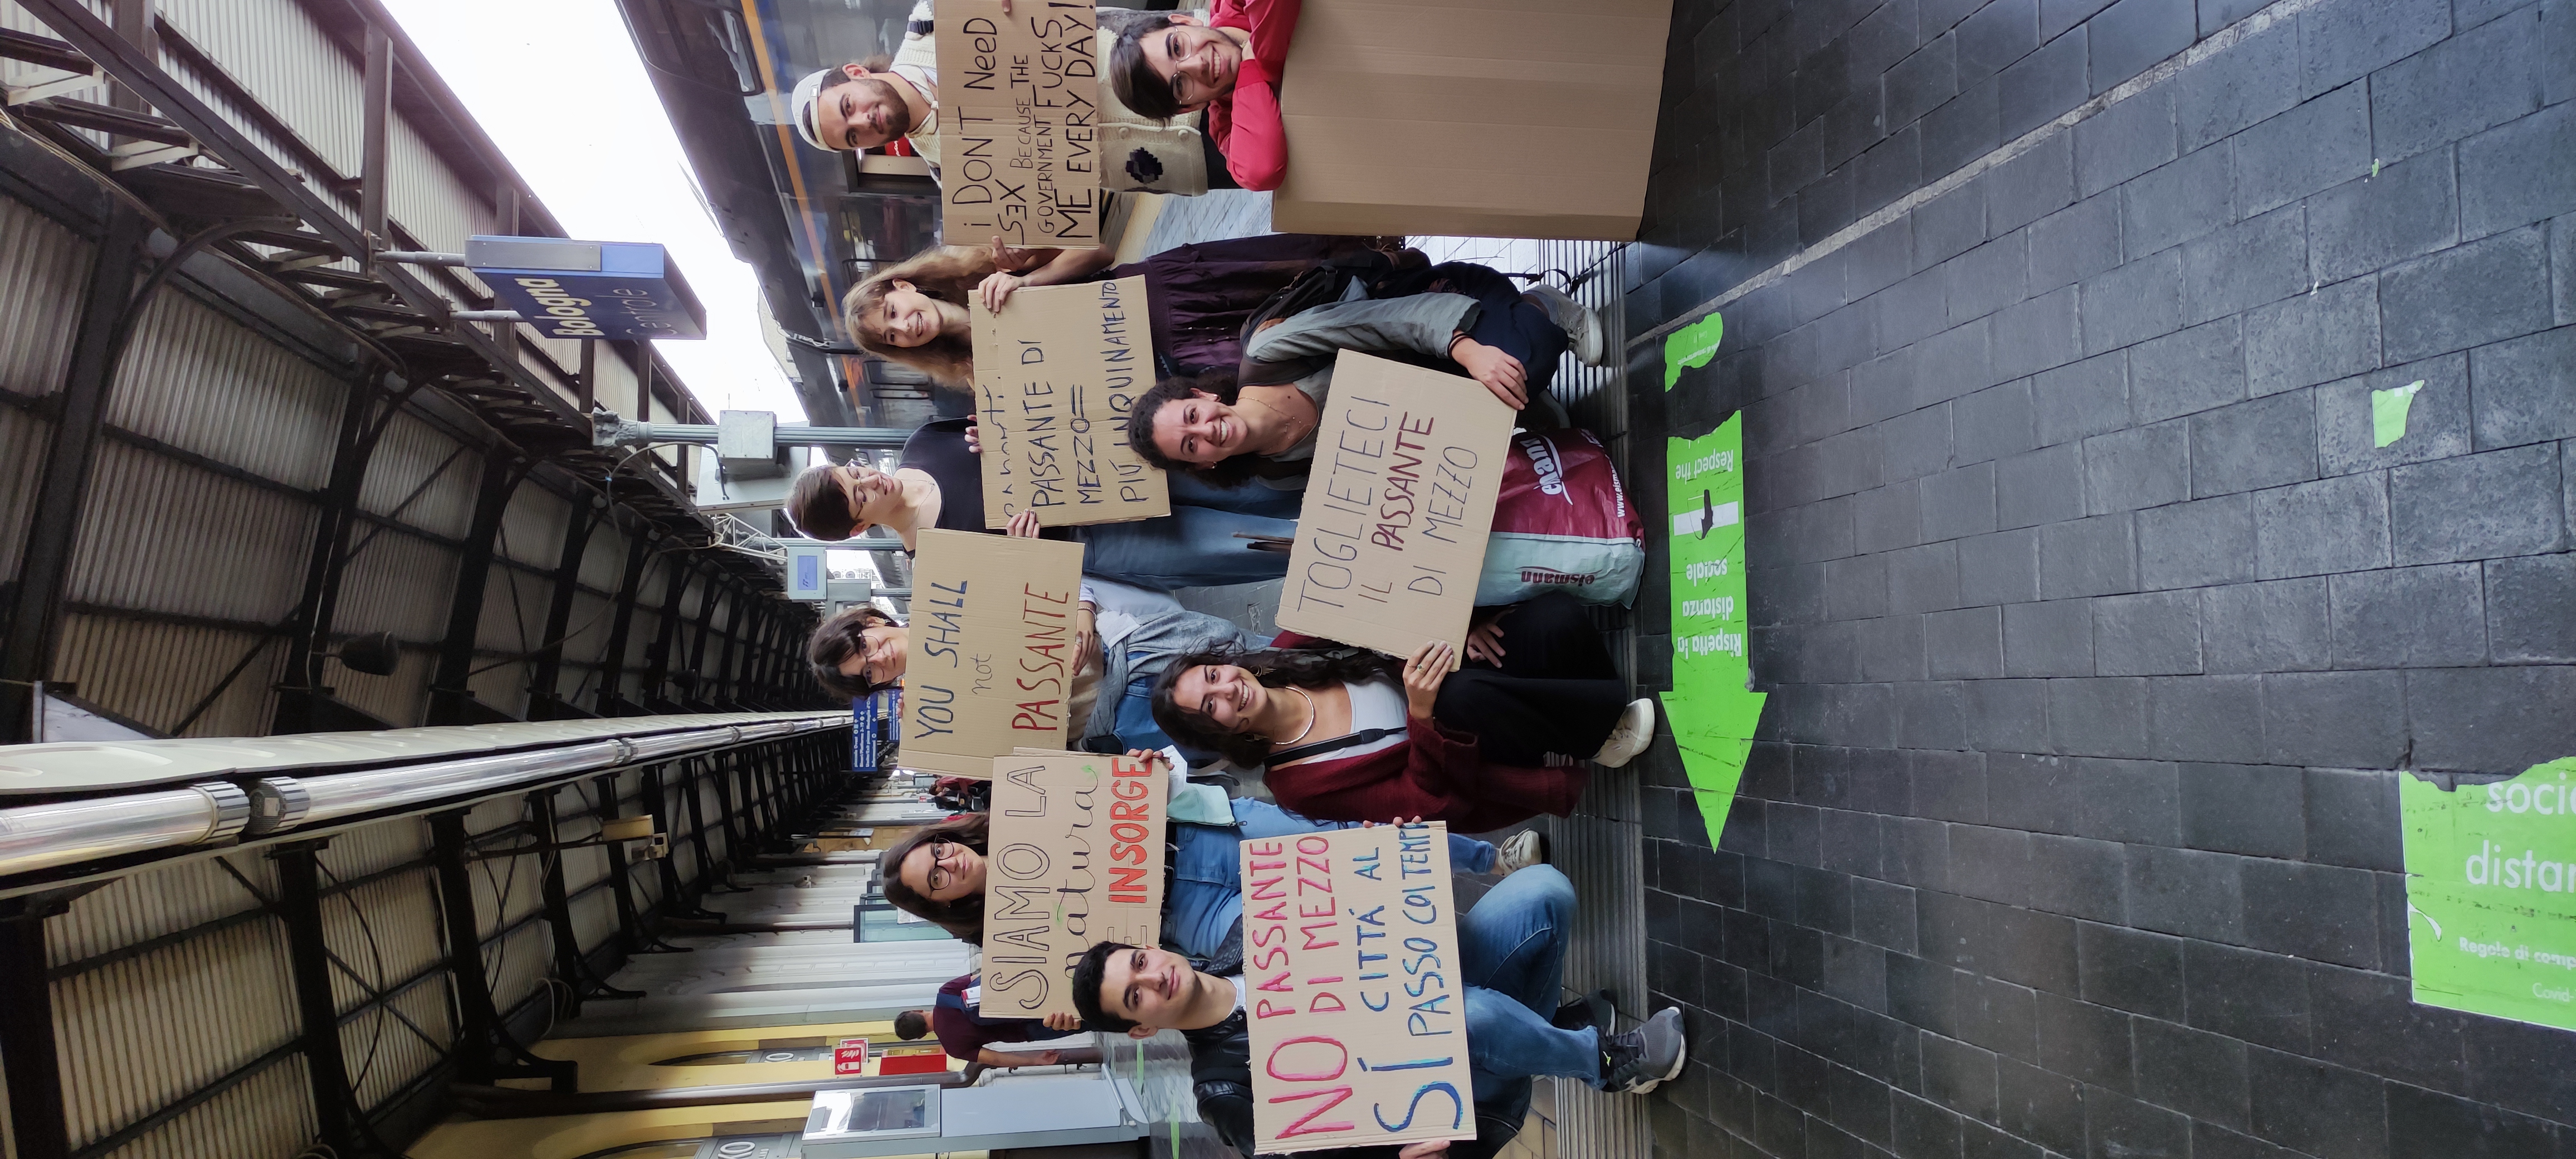 Bologna
Centrale
NO PASSANTE
DI MEZZO
SÍ CITTÁ AL
PASSO COI TEMPI
SIAMO LA
natura
E INSORGE
YOU SHALL
not
PASSANTE
TOGLIETECI
IL PASSANTE
DI MEZZO
PASSANTE DI
MEZZO=
PIÚ INQUINAMENTO
i DON'T NeeD
SEX BECAUSE THE
GOVERNMENT FUCKS
ME EVERY DAY!
eismann
www.eism
Rispetta la
distanza
sociale
1
Respect the
soci
distan
Regole di comp
Covid